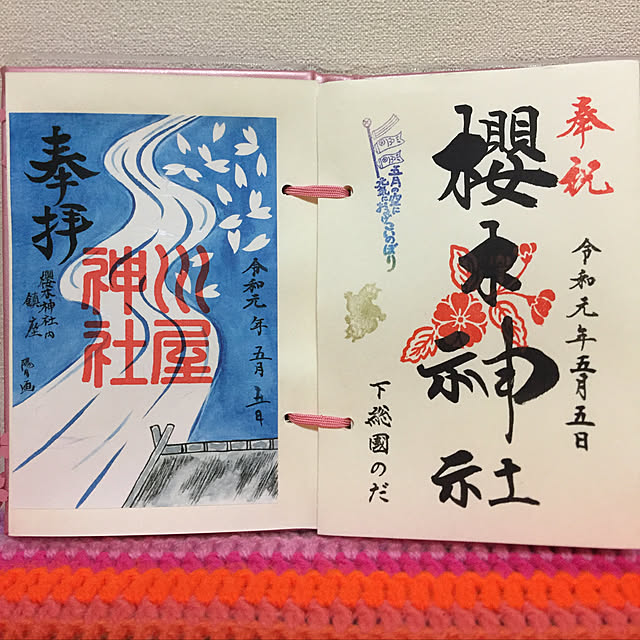 奉祝
櫻木神社
令和元年五月五日
五月の空に
元気におよげこいのぼり
下総國のだ
奉拝
川屋神社
令和元年五月五日
櫻木神社内
鎮座